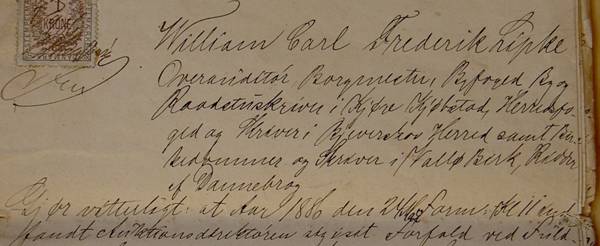 1
KRONE
William Carl Frederik Lipke
Overauditør, Borgmester, Byfoged By og
Raadstuskriver i Kjøge Kjøbstad, Herredsfo-
ged og Skriver i Bjeverskov Herred samt Bir-
kedommer og Skriver i Vallø Birk, Ridder
af Dannebrog
Gjør vitterligt: at Aar 1886 den 24 Form: Kl 11
fandt Auktionsdirektøren Forfald ved